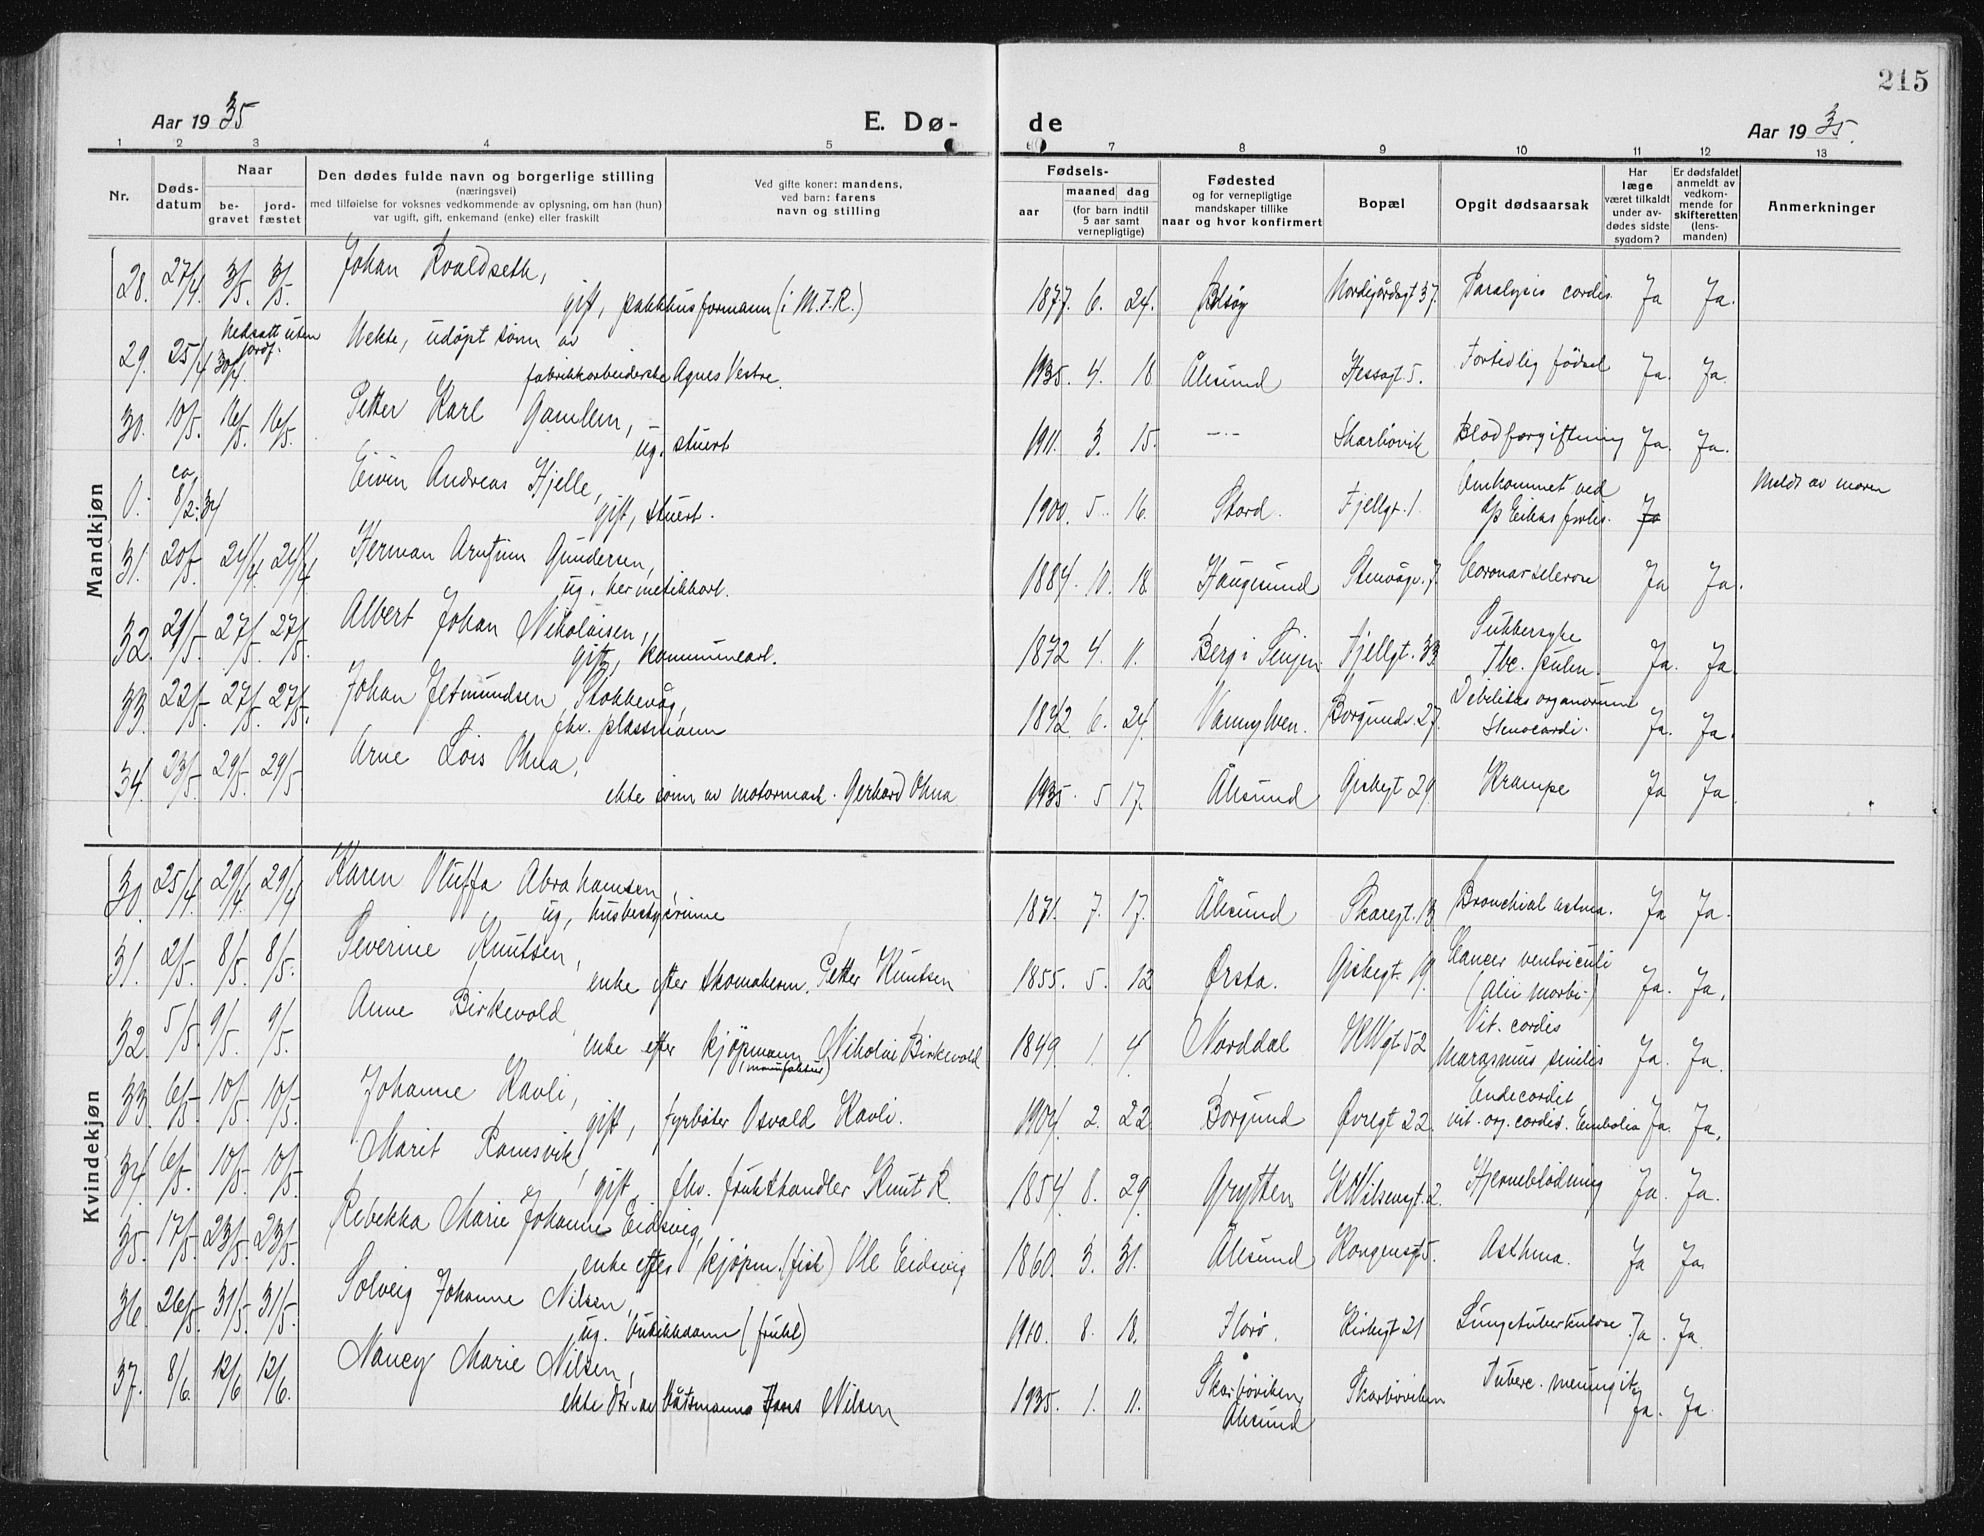 215
Aar 1935 E. Dø- de Aar 1935.
1 2 3 4 5 7 8 9 10 11 12 13
Nr. Døds-datum Naar be-gravet jord-fæstet
Den dødes fulde navn og borgerlige stilling
(næringsvei)
med tilføielse for voksnes vedkommende av oplysning, om han (hun)
var ugift, gift, enkemand (enke) eller fraskilt
Ved gifte koner: mandens,
ved barn: farens
navn og stilling
Fødsels-
aar maaned dag
(for barn indtil
5 aar samt
vernepligtige)
Fødested
og for vernepligtige
mandskaper tillike
naar og hvor konfirmert
Bopæl
Opgit dødsaarsak
Har
læge
været tilkaldt
under av-
dødes sidste
sygdom?
Er dødsfaldet
anmeldt av
vedkom-
mende for
skifteretten
(lens-
manden)
Anmerkninger
Mandkjøn
28. 27/4. 3/5. 3/5. Johan Roaldseth,
gift, pakkhusformann (i M.F.R.) 1877. 6. 24. Bolsøy Nordigårdsgt 37. Paralysis cordis. Ja Ja.
29. 25/4 30/4. Nedsatt uten jordf. Nekte, udøpt sønn av
fabrikkarbeiderske Agnes Vestre. 1935. 4. 18 Ålesund Hessagt 5. Fortidlig fødsel Ja. Ja.
30. 10/5. 16/5. 16/5. Petter Karl Gamlem,
ug. stuert 1911. 3. 15. -"- Skarbøvik Blodforgiftning Ja. Ja.
0. ca. 8/2.34 Eivin Andreas Hjelle,
gift, stuert. 1900. 5. 16. Stord. Fjellgt. 1. Omkommet ved
Ja Meldt av moren
31. 20/5. 24/4 24/4 Herman Gundersen,
ug. hermetikkarb. 1884. 10. 18. Haugesund Stenvågv. 7. Coronarsclerose Ja Ja.
32. 21/5. 27/5. 27/5. Albert Johan Nikolaisen,
gift, kommunearb. 1872 4. 11. Berg i Senjen. Fjellgt. 33 Sukkersyke
Tbc. pulm. Ja. Ja.
33. 22/5. 27/5. 27/5. Johan Jetmundsen Stokkevåg,
fhv. plassmann 1842. 6. 24. Vannylven. Borgundv. 27. Debilitas organorum
Stenocardi. Ja. Ja.
34. 23/5. 29/5. 29/5 Arne Lois Ohna,
ekte sønn av motormask. Gerhard Ohna 1935. 5 17. Ålesund Giskegt 29. Krampe Ja Ja.
Kvindekjøn
30. 25/4. 29/4. 29/4 Karen Oluffa Abrahamsen,
ug, husbestyrinne 1871. 7. 17. Ålesund Skaregt. 13. Bronchial astma. Ja Ja.
31. 2/5. 8/5. 8/5. Severine Knutsen,
enke efter skomakerm. Petter Knutsen 1855. 5. 12 Ørsta. Giskegt. 19. Cancer ventriculi
(Alii morbi) Ja. Ja.
32. 5/5. 9/5. 9/5. Anne Birkevold,
enke efter kjøpmann (manufaktur) Nikolai Birkevold 1849. 1. 4. Norddal 52 Vit. cordis
Marasmus senilis Ja. Ja.
33. 6/5. 10/5. 10/5. Johanne Kavli,
gift, fyrbøter Osvald Kavli. 1904. 2. 22 Borgund Øvregt 22. Endocardit
vit. org. cordis. Embolia Ja. Ja.
34. 6/5. 10/5. 10/5. Marit Ramsvik,
gift, fhv. frukthandler Knut R. 1854. 8. 29. Grytten 2. Hjerneblødning Ja. Ja.
35. 17/5. 23/5. 23/5. Rebekka Marie Johanne Eidsvig,
enke efter kjøpm. (fisk) Ole Eidsvig 1860. 3. 31. Ålesund Kongensgt 5. Asthma. Ja Ja.
36. 26/5. 31/5. 31/5. Solveig Johanne Nilsen,
ug. butikkdame (frukt) 1910. 8. 18. Florø. Kirkegt 21 Lungetuberkulose. Ja. Ja.
37. 8/6. 12/6 12/6. Nancy Marie Nilsen,
ekte dtr. av båtsmann Nilsen 1935. 1. 11. Skarbøviken,
Ålesund Skarbøviken Tuberc. meningit. Ja. Ja.